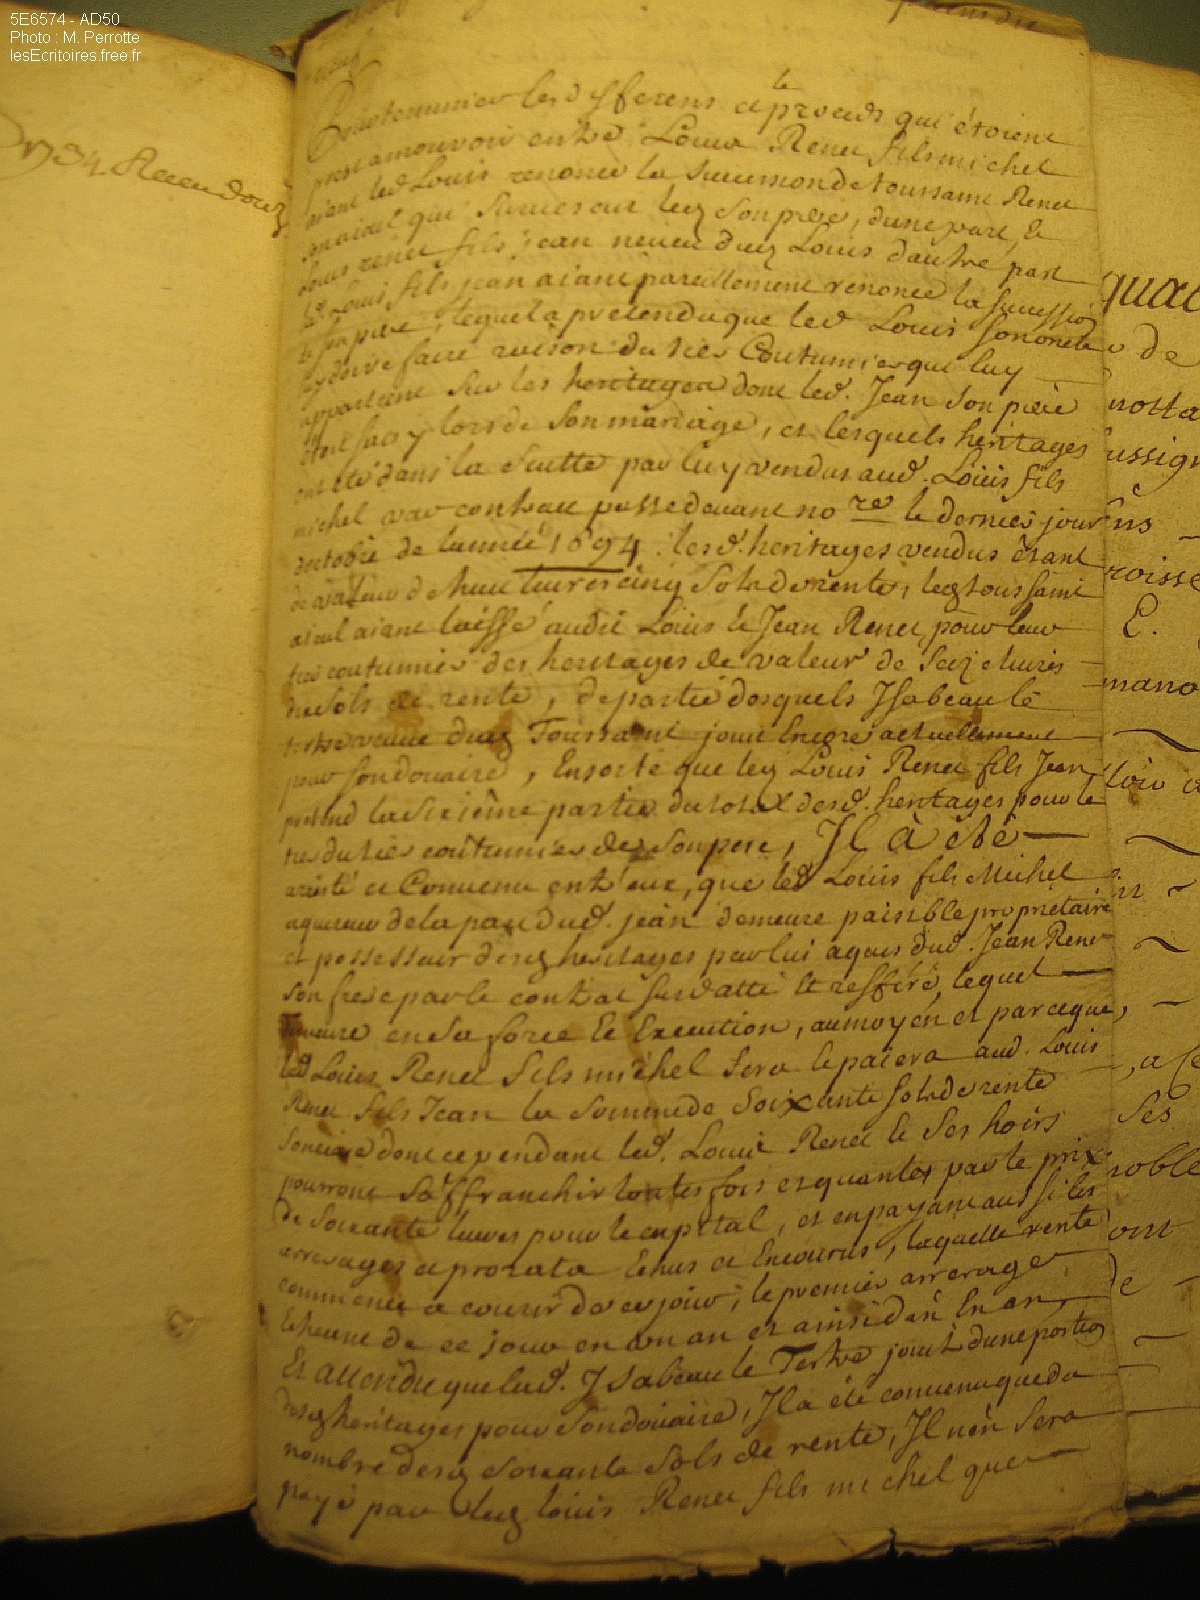 5E6574 - AD50
Photo : M. Perrotte
lesEcritoires.free.fr
1734
Pour terminer les differens et le proceds qui étoient
prest a mouvoir entre Louis Renet fils michel
aiant led Louis renoncé la succession de toussaint Renet
son aieul que Successeur led son pere, dune part, et
Louis renet fils jean neveu dud Louis d'autre part
led. Louis fils jean aiant pareillement renoncé la succession
de son pere, lequel a pretendu que led Louis son oncle
luy doive faire raison du tiers Coutumier que luy
appartient sur les heritages dont led. Jean son père
étoit saisy lors de son mariage, et lesquels heritages
ont été dans la suitte par luy vendus aud. Louis fils
michel par contract passé devant no re le dernier jour
doctobre de lannée 1694. lesd. heritages vendus étant
de valeur de huit livres cinq sols de rente, led toussaint
aieul aiant laissé audit Louis et Jean Renet, pour leur
tiers coutumier des heritages de valeur de seize livres
dix sols de rente, de partie desquels Isabeau le
tertre veuve dud Toussaint jouit Encore actuellement
pour son douaire, Ensorte que led Louis Renet fils Jean
pretend la sixiême partie du total desd. heritages pour le
tiers du tiers coûtumier de son pere, Il à été
aresté et Convenu entr'eux, que led Louis fils Michel
aquereur de la part dud. jean demeure paisible proprietaire
et possesseur desd heritages par lui aquis dud. Jean Renet
son frere par le contrat surdatté et refferé, lequel
demeure en sa force et Execution, au moyen et par ce que,
led Louis Renet fils michel fera et paiera aud. Louis
Renet fils Jean la somme de soixante sols de rente
fonciere dont cependant led. Louis Renet et ses hoirs
pourront s'affranchir toutes fois et quantes par le prix
de soixante livres pour le capital, et en payant aussi les
arrerages et prorata echus et Encourus, laquelle rente
commence a courir de ce jour, le premier arrerage
echeant de ce jour en un an et ainsi dan En an,
Et attendu que lad. Isabeau le Tertre jouit dune portion
desd heritages pour son douaire, Il a été convenu que du
nombre desd soixante sols de rente, Il n'en sera
payé par led Louis Renet fils michel que